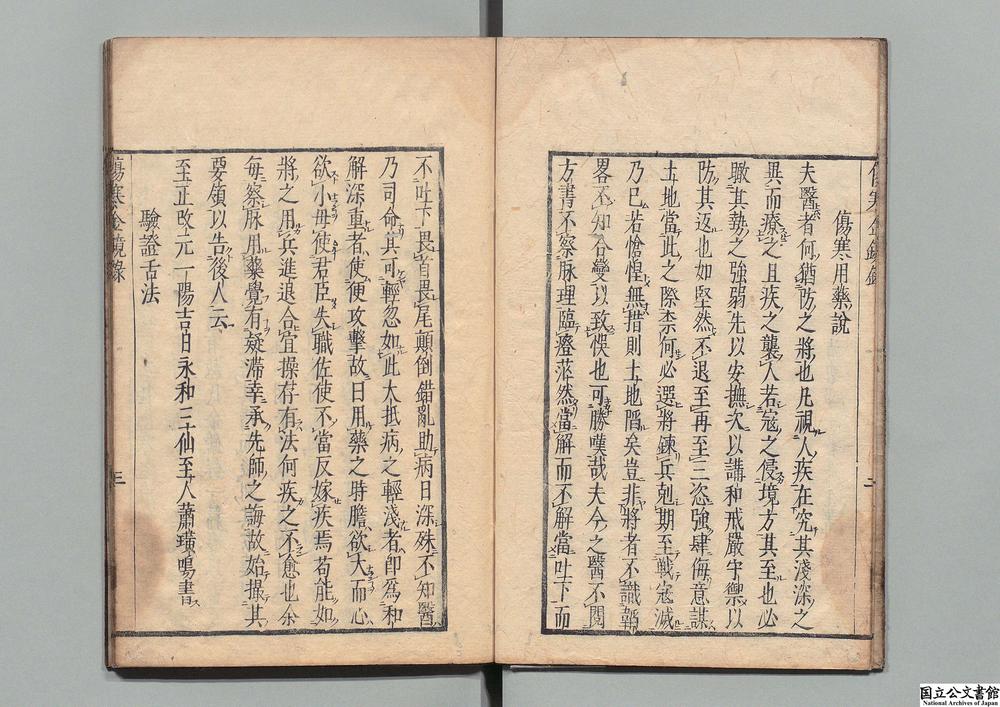 傷寒用藥說
夫醫者何猶防之將也凡視人疾在究其淺深之
異而療之且疾之襲人若寇之侵境方其至也必
瞰其勢之強弱先以安撫次以講和戒嚴守禦以
防其返也如堅然不退至再至三恣強肆侮意謀
土地當此之際柰何必選將鍊兵剋期至戰寇滅
乃已若愴惶無措則土地陷矣豈非將者不識韜
畧不知合變以致悞也可勝嘆哉夫今之醫不閱
方書不察脉理臨瘥茫然當解而不解當吐下而
不吐下畏首畏尾顛倒錯亂助病日深殊不知醫
乃司命其可輕忽如此大抵病之輕淺者卽爲和
解深重者使便攻擊故曰用藥之時膽欲大而心
欲小毋使君臣失職佐使不當反嫁疾焉苟能如
將之用兵進退合宜操存有法何疾之不愈也余
每察脉用藥覺有疑滯幸承先師之誨故始撮其
要領以告後人云
至正改元一陽吉日永和三仙至人蕭璜鳴書
驗證舌法
傷寒金鏡錄
三
國立公文書館
National Archives of Japan